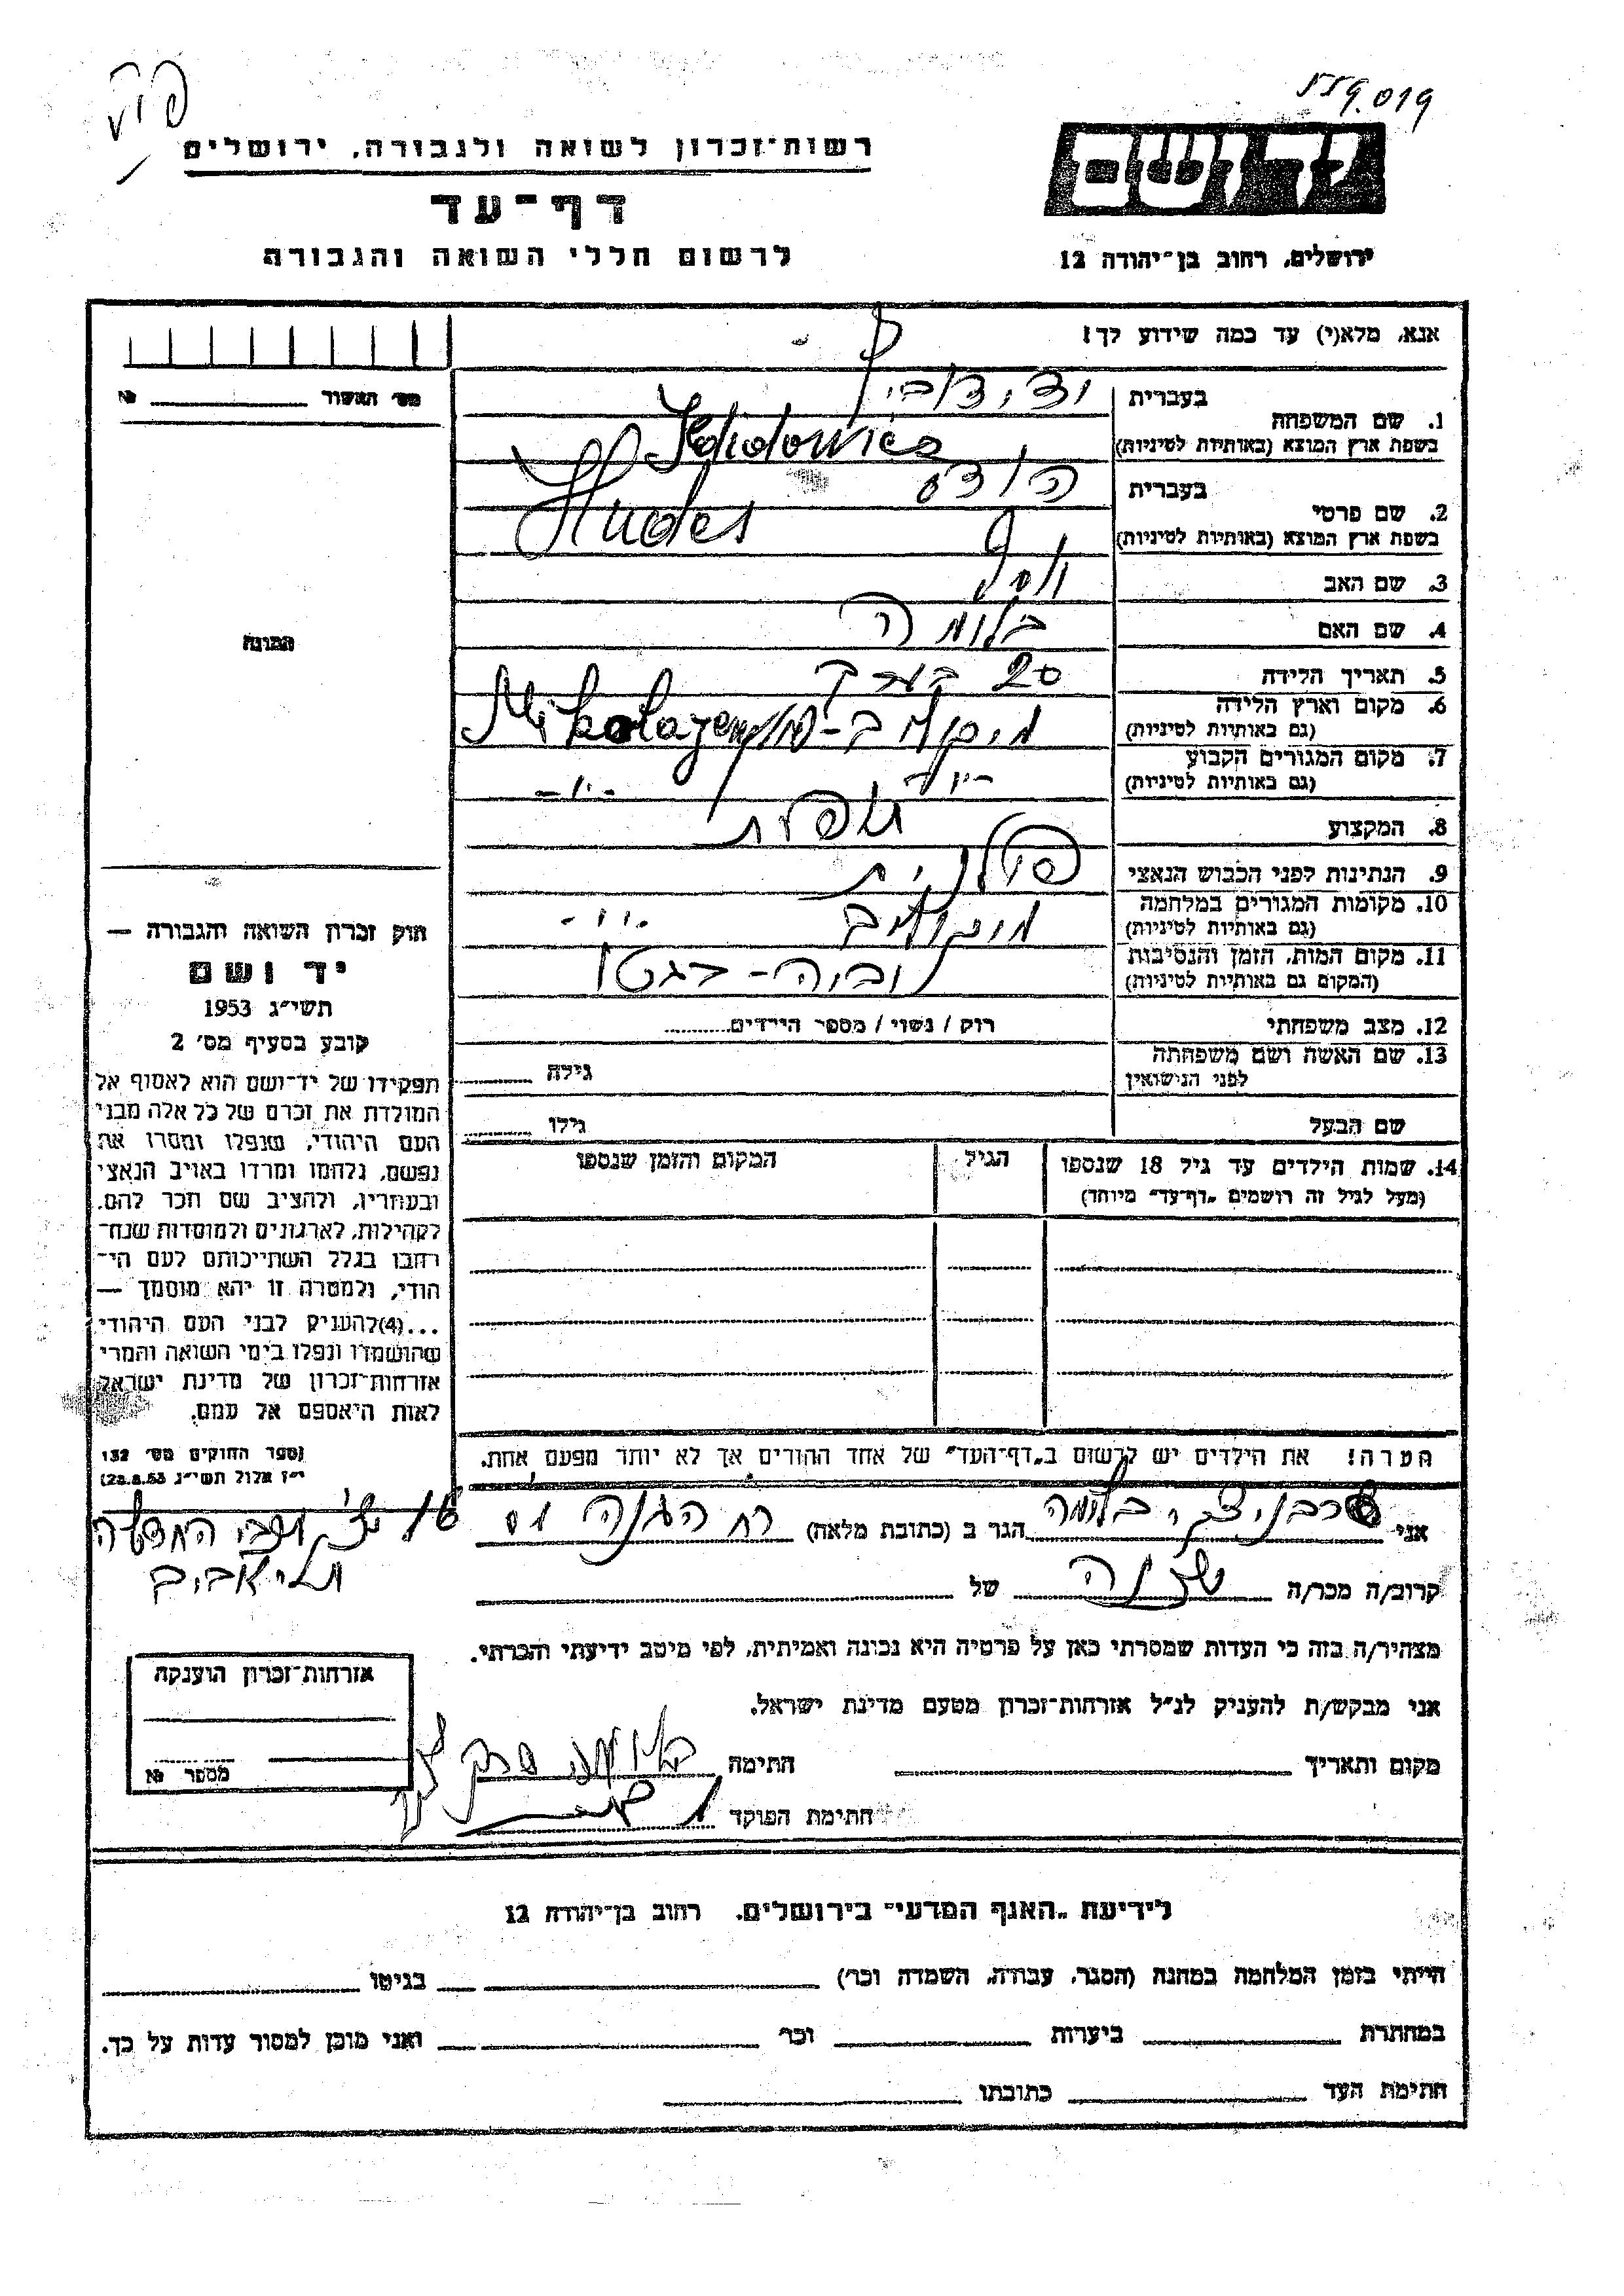 רשות־זכרון לשואה ולגבורה, ירושלים
דף־עד
לרשום חללי השואה והגבורה
יד ושם
ירושלים, רחוב בן־יהודה 12
אנא, מלא(י) עד כמה שידוע לך!
מס׳ האשור №
1. שם המשפחה
בעברית
בשפת ארץ המוצא (באותיות לטיניות)
2. שם פרטי
בעברית הודס
בשפת ארץ המוצא (באותיות לטיניות) Hudes
3. שם האב יוסף
4. שם האם בלומה
5. תאריך הלידה 20 בערך
6. מקום וארץ הלידה
(גם באותיות לטיניות)
7. מקום המגורים הקבוע
(גם באותיות לטיניות) -"-
8. המקצוע תופרת
9. הנתינות לפני הכבוש הנאצי פולנית
10. מקומות המגורים במלחמה
(גם באותיות לטיניות) -"-
11. מקום המות, הזמן והנסיבות
(המקום גם באותיות לטיניות) בגטו
12. מצב משפחתי רוק / נשוי / מספר הילדים
13. שם האשה ושם משפחתה
לפני הנישואין גילה
שם הבעל גילו
14. שמות הילדים עד גיל 18 שנספו
(מעל לגיל זה רושמים „דף־עד" מיוחד)
הגיל
המקום והזמן שנספו
התמונה
חוק זכרון השואה והגבורה —
יד ושם
תשי״ג 1953
קובע בסעיף מס׳ 2
תפקידו של יד־ושם הוא לאסוף אל
המולדת את זכרם של כל אלה מבני
העם היהודי, שנפלו ומסרו את
נפשם, נלחמו ומרדו באויב הנאצי
ובעוזריו, ולהציב שם וזכר להם,
לקהילות, לארגונים ולמוסדות שנח־
רבו בגלל השתייכותם לעם הי־
הודי, ולמטרה זו יהא מוסמך —
...(4)להעניק לבני העם היהודי
שהושמדו ונפלו בימי השואה והמרי
אזרחות־זכרון של מדינת ישראל
לאות היאספם אל עמם.
(ספר החוקים מס׳ 132
י״ז אלול תשי״ג 28.8.53)
הערה! את הילדים יש לרשום ב„דף־העד" של אחד ההורים אך לא יותר מפעם אחת.
אני בלומה הגר ב (כתובת מלאה) רח ההגנה
תל אביב
קרוב/ה מכר/ה שכנה של
מצהיר/ה בזה כי העדות שמסרתי כאן על פרטיה היא נכונה ואמיתית, לפי מיטב ידיעתי והכרתי.
אני מבקש/ת להעניק לנ״ל אזרחות־זכרון מטעם מדינת ישראל.
מקום ותאריך חתימה
חתימת הפוקד
אזרחות־זכרון הוענקה
מספר №
לידיעת „האגף המדעי" בירושלים, רחוב בן־יהודה 12
הייתי בזמן המלחמה במחנה (הסגר, עבודה, השמדה וכו׳) בגיטו
במחתרת ביערות וכו׳ ואני מוכן למסור עדות על כך.
חתימת העד כתובתו